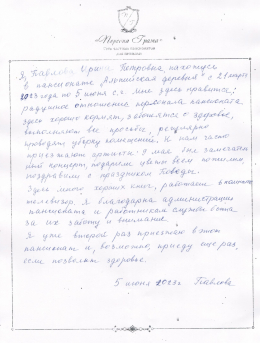 Я, Павлова Ирина Петровна нахожусь
в пансионате "Альпийская деревня" с 21 марта
2023 года по 5 июня с.г. Мне здесь нравится:
радушное отношение персонала пансионата
Здесь хорошо кормят, заботятся о здоровье,
выполняют все просьбы, регулярно
проводят уборку помещений. К нам часто
приезжают артисты. 9 мая был замечатель
ный концерт, подарили цветы всем пожилым,
поздравили с праздником Победы.
Здесь много хороших книг, работает
телевизор. Я благодарна администрации
пансионата и работникам службы быта
за их заботу и внимание.
Я уже второй раз приезжаю в этот
пансионат и, возможно, приеду ещё раз,
если позволит здоровье.
5 июня 2023г Павлова